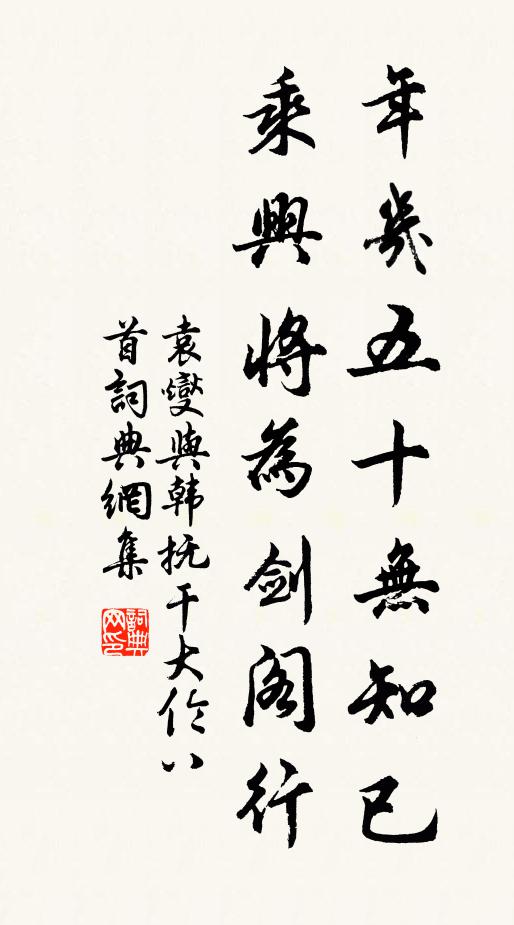 年幾五十無知已
乘興將為劍閣行
袁燮與韓抚干大伦八
首詞典網集
詞典网印